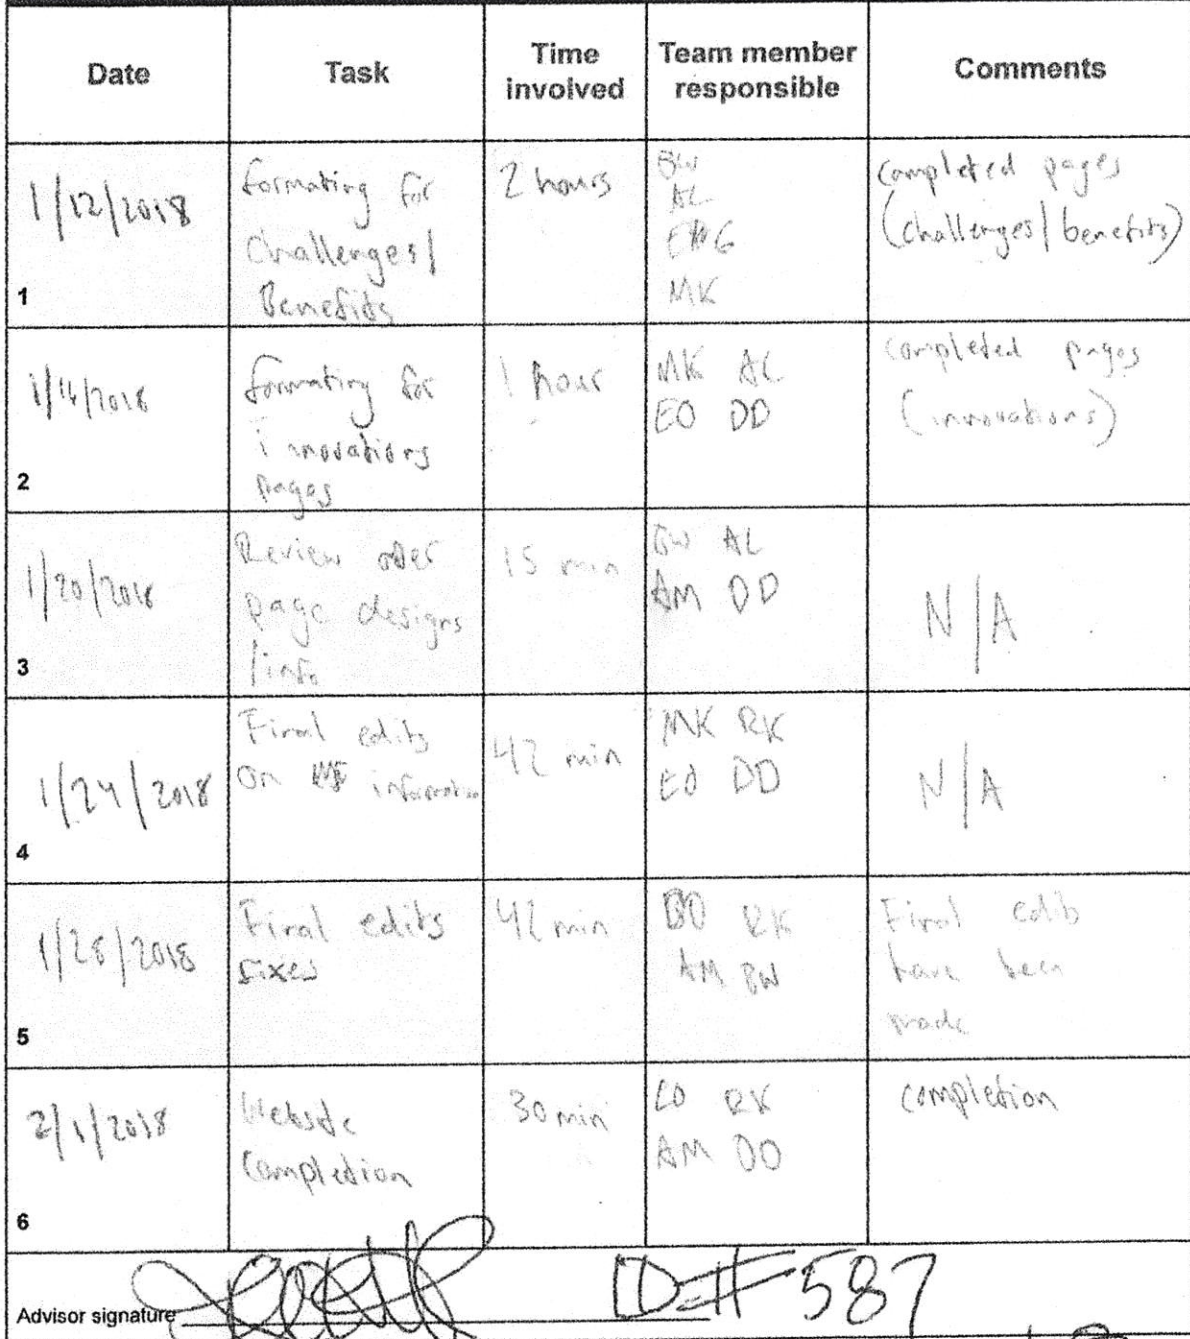 Date Task Time involved Team member responsible Comments
1 1/12/2018
formating for
challenges/
Benefits
2 hours
BW
AL
MK
completed pages
(challenges/benefits)
2 1/14/2018
formating for
innovations
pages
1 hour
MK AL
EO DD
completed pages
(innovations)
3 1/20/2018
Review over
page designs
/info
15 min
BW AL
AM DD
N/A
4 1/24/2018
Final edits
on information
42 min
MK RK
EO DD
N/A
5 2018
Final edits
fixes
42 min
RK
AM BW
Final edits
have been
made
6 2/1/2018
Website
Completion
30 min
RK
AM DD
completion
Advisor signature
ID# 587